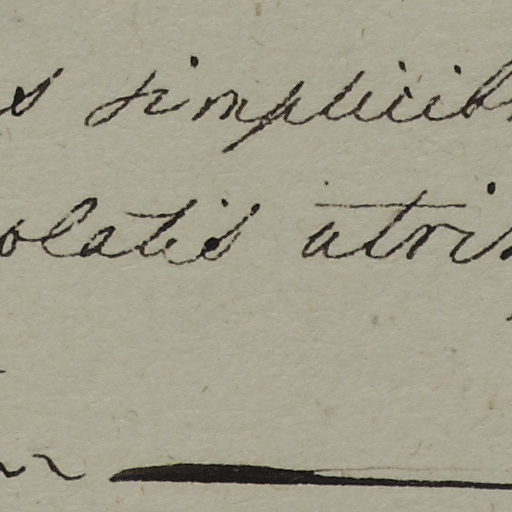 s simplicib
olatis utris